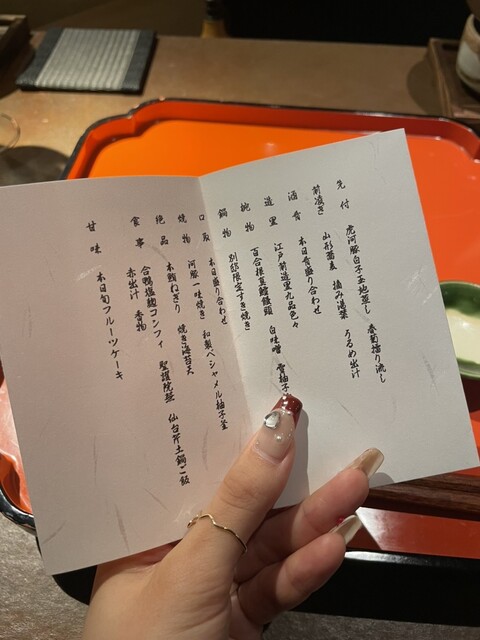 先付　虎河豚白子玉地蒸し　春菊摺り流し
前凌ぎ　山形蕎麦　摘み湯葉　うるめ出汁
酒肴　本日肴盛り合わせ
造里　江戸前造里九品色々
椀物　百合根真鱈饅頭　白味噌　雪柚子
鍋物　別邸限定すき焼き
口取　本日盛り合わせ　和製ベシャメル柚子釜
焼物　河豚一味焼き
絶品　本鮪ねぎり　焼き海苔天
食事　合鴨塩麹コンフィ　聖護院蕪　仙台芹土鍋ご飯
赤出汁　香物
甘味　本日旬フルーツケーキ